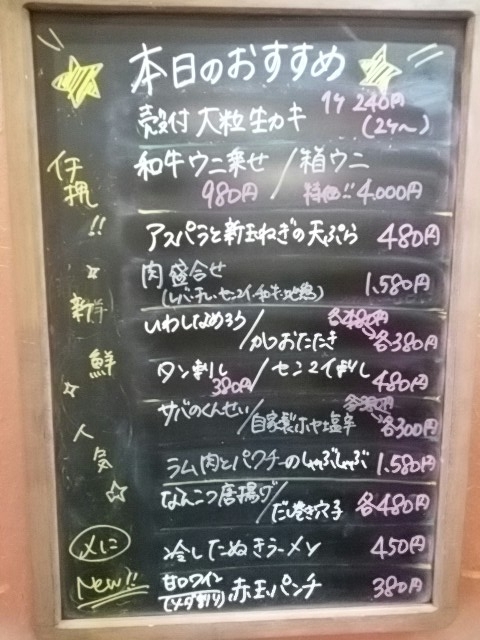 本日のおすすめ
殻付 大粒生カキ 1ケ 240円
(2ケ〜)
和牛ウニ乗せ / 箱ウニ
980円 特価!! 4.000円
アスパラと新玉ねぎの天ぷら 480円
肉盛合せ 1.580円
いわしなめろう / かつおたたき 各480円 各380円
タン刺し / センマイ刺し
380円 480円
サバのくんせい / 自家製ホヤ塩辛 各300円
ラム肉とパクチーのしゃぶしゃぶ 1.580円
なんこつ唐揚げ / だし巻き穴子 各480円
冷したぬきラーメン 450円
甘口ワイン 赤玉パンチ 380円
イチ押
!!
新鮮
人気
〆に
New!!